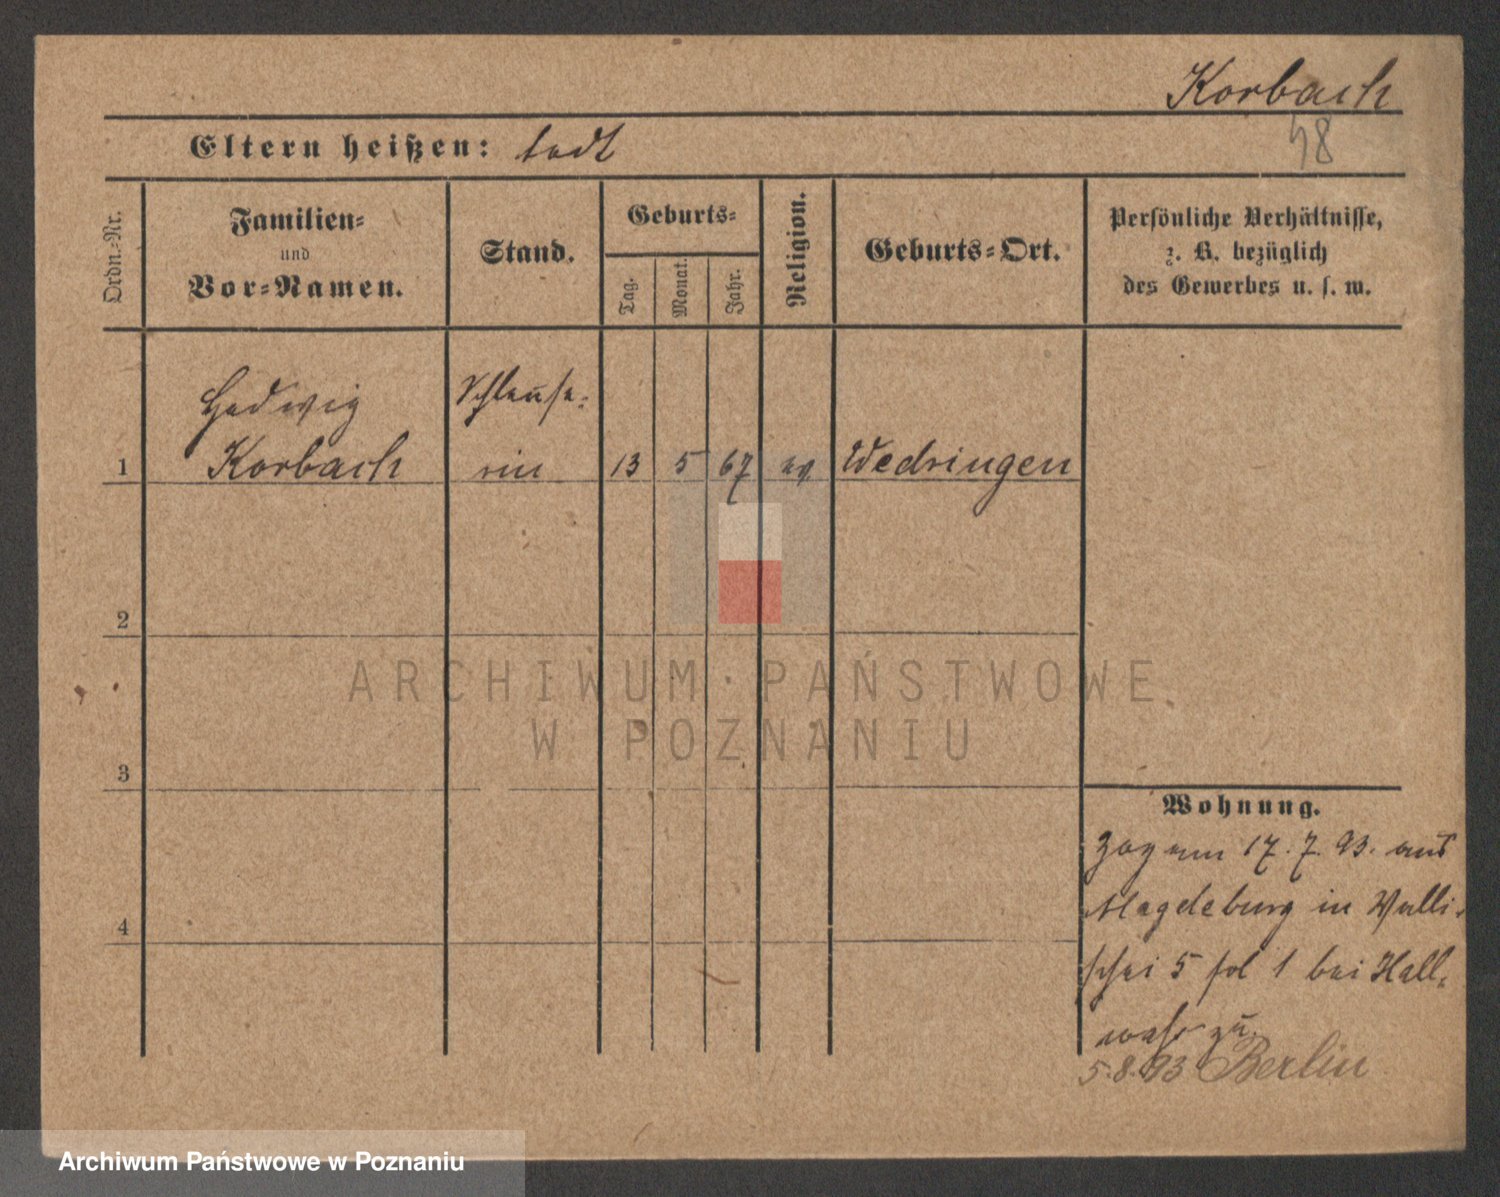 Korbach
48
Eltern heißen: todt
Ordn.-Nr.
Familien-
und
Vor-Namen.
Stand.
Geburts-
Tag.
Monat.
Jahr.
Religion.
Geburts-Ort.
Persönliche Verhältnisse,
z. B. bezüglich
des Gewerbes u. s. w.
Hedwig
Schleuse-
1 Korbach rin 13 5 67 ev. Wedringen
2
3
4
ARCHIWUM PAŃSTWOWE
W POZNANIU
Wohnung.
Zog am 17. 7. 93. aus
Magdeburg in Walli-
schei 5 fol 1 bei Hall-
zu
5.8.93 Berlin
Archiwum Państwowe w Poznaniu